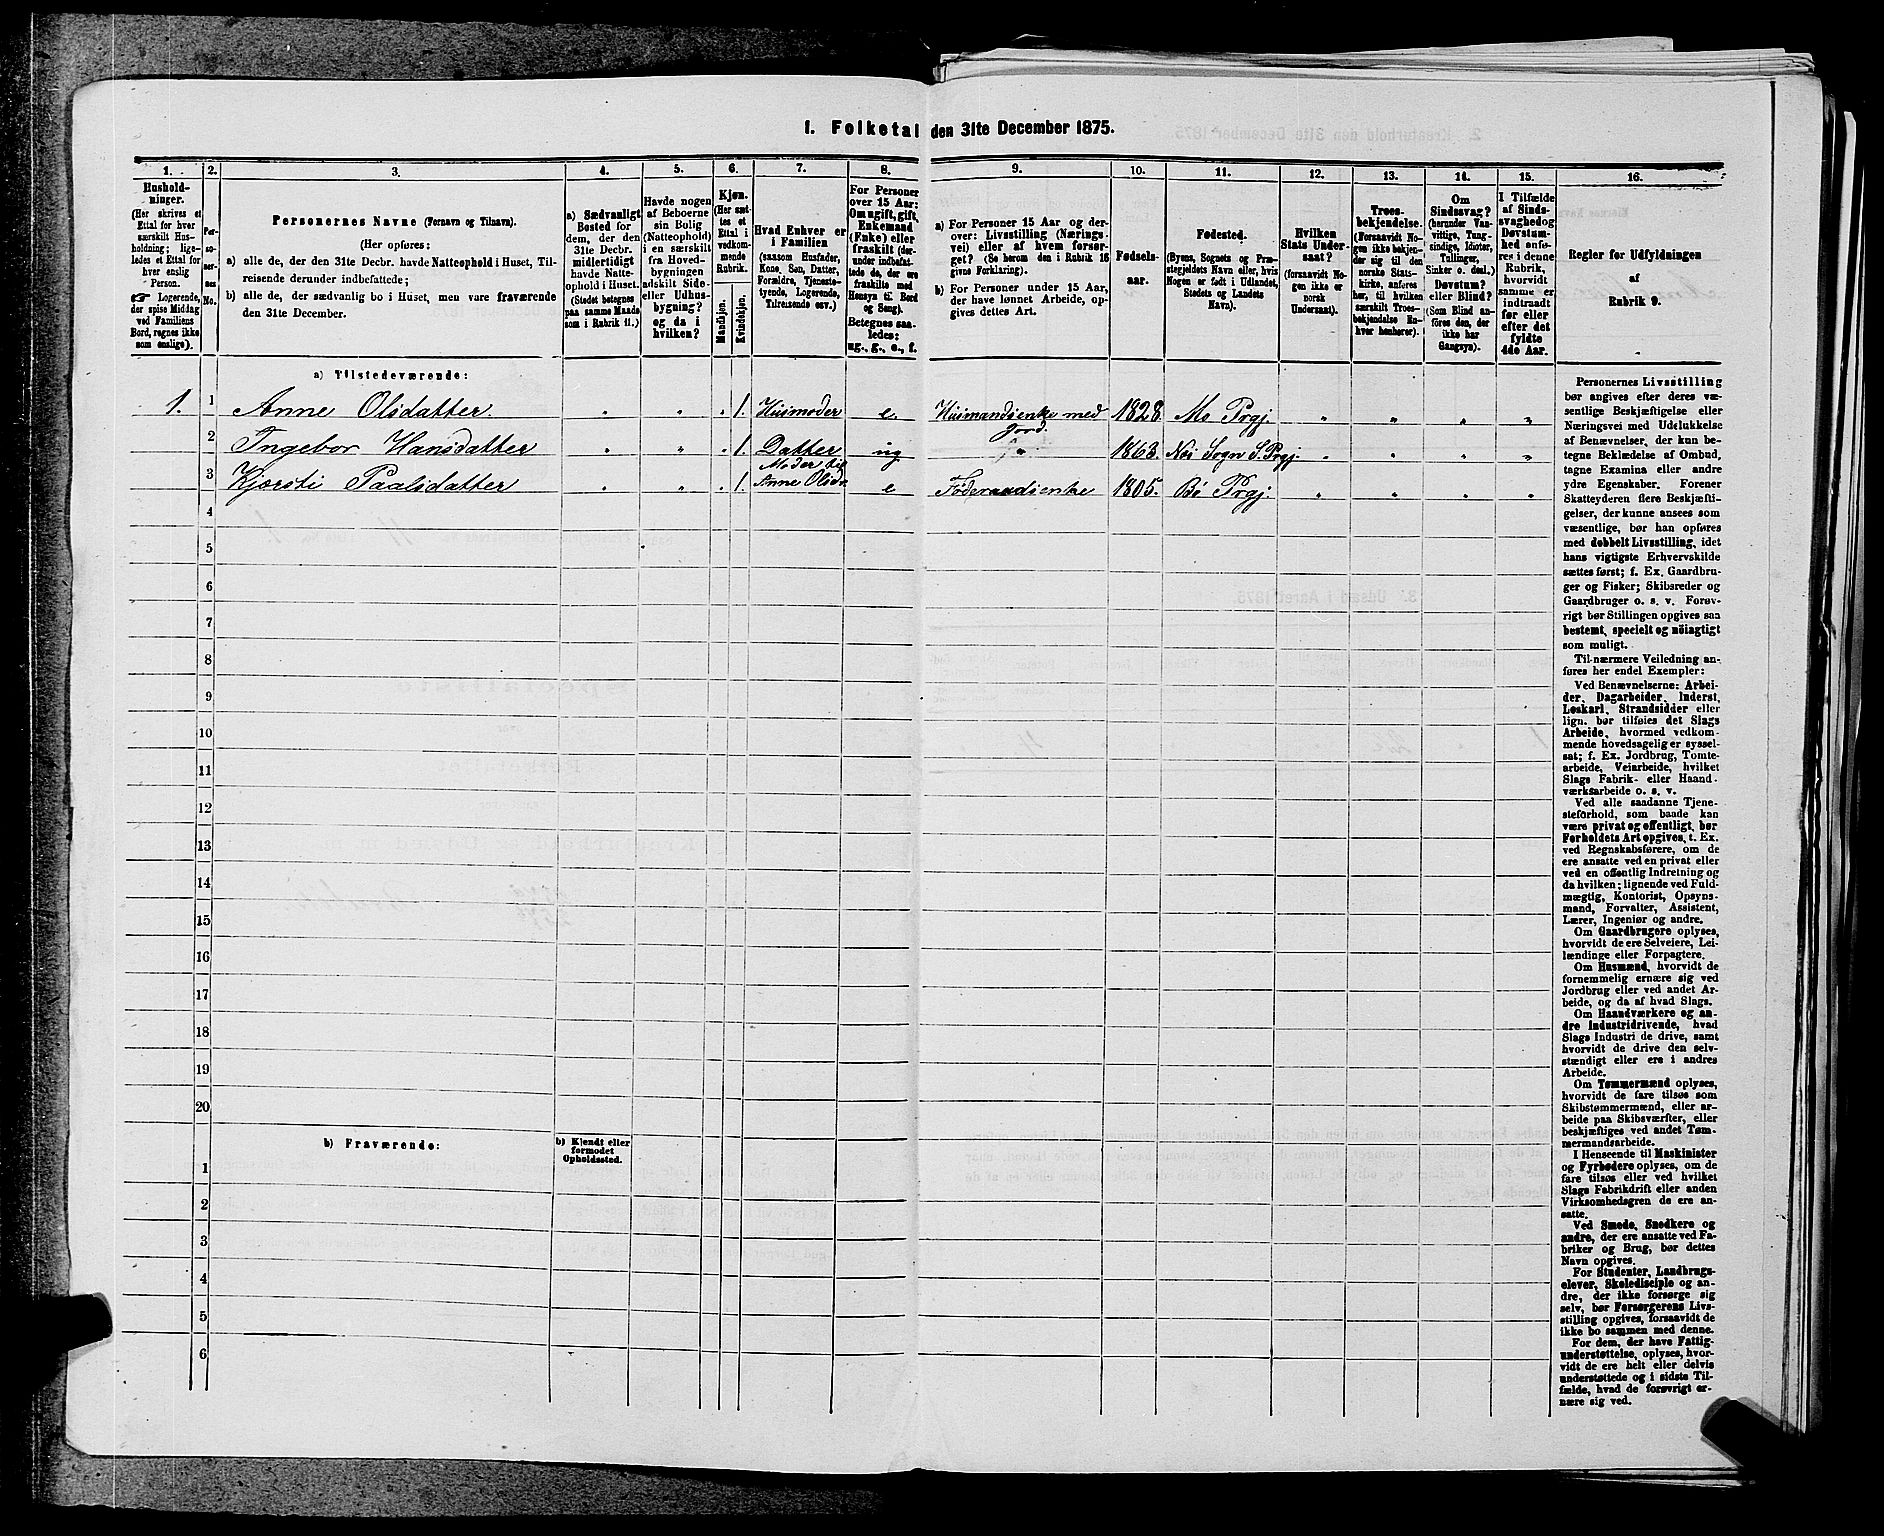 1. Folketal den 31te December 1875.
1.
Hushold-
ninger.
(Her skrives et
Ettal for hver
særskilt Hus-
holdning; lige-
ledes et Ettal for
hver enslig
Person.
☞ Logerende,
der spise Middag
ved Familiens
Bord, regnes ikke
som enslige).
2.
Per-
so-
ner-
nes
No.
3.
Personernes Navne (Fornavn og Tilnavn).
(Her opføres:
a) alle de, der den 31te Decbr. havde Natteophold i Huset, Til-
reisende derunder indbefattede;
b) alle de, der sædvanlig bo i Huset, men vare fraværende
den 31te December.
4.
a) Sædvanligt
Bosted for
dem, der den
31te Decbr.
midlertidigt
havde Natte-
ophold i Huset.
(Stedet betegnes
paa samme Maade
som i Rubrik 11.)
5.
Havde nogen
af Beboerne
sin Bolig
(Natteophold)
i en særskilt
fra Hoved-
bygningen
adskilt Side-
eller Udhus-
bygning?
og da i
hvilken?
6.
Kjøn.
(Her sæt-
tes et
Ettal i
vedkom-
mende
Rubrik.
Mandkjøn.
Kvindekjøn.
7.
Hvad Enhver er
i Familien
(saasom Husfader,
Kone, Søn, Datter,
Forældre, Tjeneste-
tyende, Logerende,
Tilreisende osv.)
8.
For Personer
over 15 Aar:
Om ugift, gift,
Enkemand
(Enke) eller
fraskilt (der-
under indbefat-
tede de, der ere
fraskilte med
Hensyn til Bord
og Seng).
Betegnes saa-
ledes:
ug., g., e., f.
9.
a) For Personer 15 Aar og der-
over: Livsstilling (Nærings-
vei) eller af hvem forsør-
get? (Se herom den i Rubrik 16
givne Forklaring).
b) For Personer under 15 Aar,
der have lønnet Arbeide, op-
gives dettes Art.
10.
Fødsels-
aar.
11.
Fødested.
(Byens, Sognets og Præ-
stegjeldets Navn eller, hvis
Nogen er født i Udlandet,
Stedets og Landets
Navn).
12.
Hvilken
Stats Under-
saat?
(forsaavidt No-
gen ikke er
norsk
Undersaat).
13.
Troes-
bekjendelse.
(Forsaavidt No-
gen ikke bekjen-
der sig til den
norske Stats-
kirke, anføres
her, til hvilken
særskilt Troes-
bekjendelse En-
hver henhører).
14.
Om
Sindssvag?
(herunder Van-
vittige, Tung-
sindige, Idioter,
Tullinger,
Sinker o. desl.)
Døvstum?
eller Blind?
(Som Blind an-
føres den, der
ikke har
Gangsyn).
15.
I Tilfælde
af Sinds-
svaghed og
Døvstum-
hed anfø-
res i denne
Rubrik,
hvorvidt
samme er
indtraadt
før eller
efter det
fyldte
4de Aar.
16.
Regler for Udfyldningen
af
Rubrik 9.
a) Tilstedeværende:
1. 1 Anne Olsdatter. " " " 1. Husmoder e. Husmandsenke med Jord. 1828. Mo Prgj. " " " "
2 Ingebor Hansdatter " " " 1. Datter ug " 1863. Næs Sogn S. Prgj. " " " "
3 Kjersti Paalsdatter " " " 1. Moder til Anne Olsdr. e Føderaadsenke 1805. Bø Prgj. " " " "
4
5
6
7
8
9
10
11
12
13
14
15
16
17
18
19
20
b) Fraværende:
b) Kjendt eller
formodet
Opholdssted.
1
2
3
4
5
6
Personernes Livsstilling
bør angives efter deres væ-
sentlige Beskjæftigelse eller
Næringsvei med Udelukkelse
af Benævnelser, der kun be-
tegne Beklædelse af Ombud,
tagne Examina eller andre
ydre Egenskaber. Forener
Skatteyderen flere Beskjæfti-
gelser, der kunne ansees som
væsentlige, bør han opføres
med dobbelt Livsstilling, idet
hans vigtigste Erhvervskilde
sættes først; f. Ex. Gaardbru-
ger og Fisker; Skibsreder og
Gaardbruger o. s. v. Forøv-
rigt bør Stillingen opgives saa
bestemt, specielt og nöiagtigt
som muligt.
Til nærmere Veiledning an-
føres her endel Exempler:
Ved Benævnelserne: Arbei-
der, Dagarbeider, Inderst,
Løskarl, Strandsidder eller
lign. bør tilføies det Slags
Arbeide, hvormed vedkom-
mende hovedsagelig er syssel-
sat; f. Ex. Jordbrug, Tomte-
arbeide, Veiarbeide, hvilket
Slags Fabrik- eller Haand-
værksarbeide o. s. v.
Ved alle saadanne Tjene-
steforhold, som baade kan
være privat og offentligt, bør
Forholdets Art opgives, t. Ex.
ved Regnskabsførere, om de
ere ansatte ved en privat eller
ved en offentlig Indretning og
da hvilken; lignende ved Fuld-
mægtig, Kontorist, Opsyns-
mand, Forvalter, Assistent,
Lærer, Ingeniør og andre.
Om Gaardbrugere oplyses,
hvorvidt de ere Selveiere, Lei-
lændinge eller Forpagtere.
Om Husmænd, hvorvidt de
fornemmelig ernære sig ved
Jordbrug eller ved andet Ar-
beide, og da af hvad Slags.
Om Haandværkere og an-
dre Industridrivende, hvad
Slags Industri de drive, samt
hvorvidt de drive den selv-
stændigt eller ere i andres
Arbeide.
Om Tømmermænd oplyses,
hvorvidt de fare tilsøs som
Skibstømmermænd, eller ar-
beide paa Skibsværfter, eller
beskjæftiges ved andet Tøm-
mermandsarbeide.
I Henseende til Maskinister
og Fyrbødere oplyses, om de
fare tilsøs eller ved hvilket
Slags Fabrikdrift eller anden
Virksomhedsgren de ere an-
satte.
Ved Smede, Snedkere og
andre, der ere ansatte ved Fa-
briker og Brug, bør dettes
Navn opgives.
For Studenter, Landbrugs-
elever, Skoledisciple og an-
dre, der ikke forsørge sig
selv, bør Forsørgerens Livs-
stilling opgives, forsaavidt de
ikke bo sammen med denne.
For dem, der have Fattig-
understøttelse, oplyses, hvor-
vidt de ere helt eller delvis
understøttede og i sidste Til-
fælde, hvad de forøvrigt er-
nære sig ved.